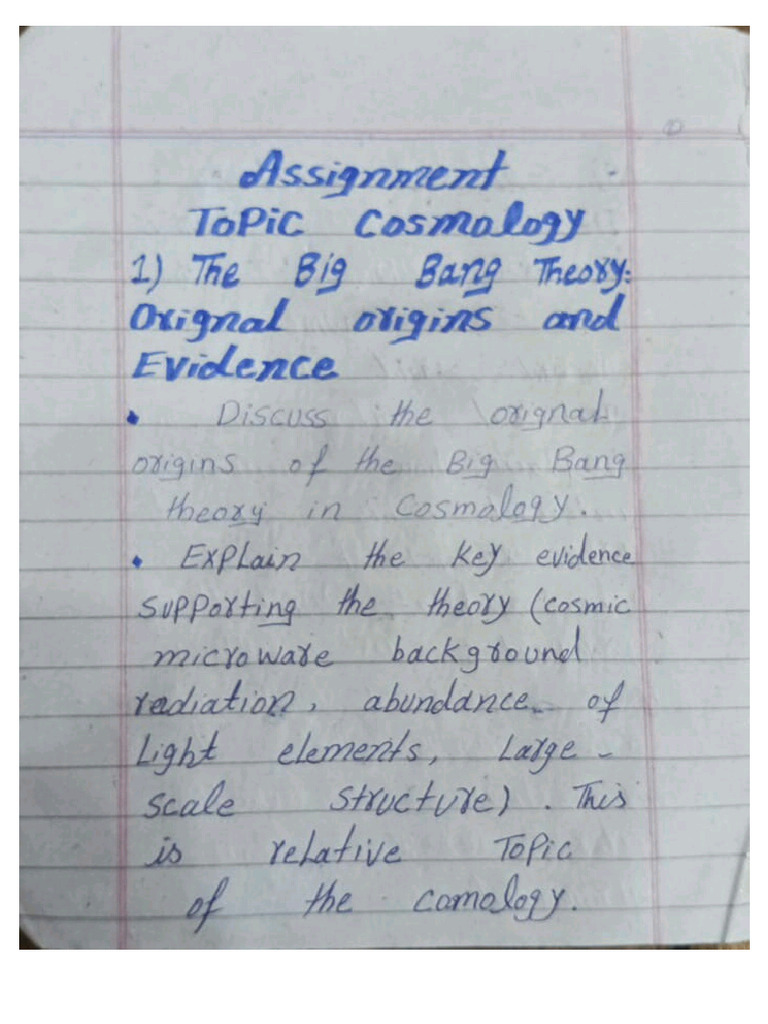 Assignment
Topic Cosmology
1) The Big Bang Theory:
Orignal origins and
Evidence
• Discuss the orignal
origins of the Big Bang
theory in Cosmology.
• Explain the key evidence
supporting the theory (cosmic
microware background
radiation, abundance of
Light elements, Large-
scale structure). This
is relative Topic
of the comology.